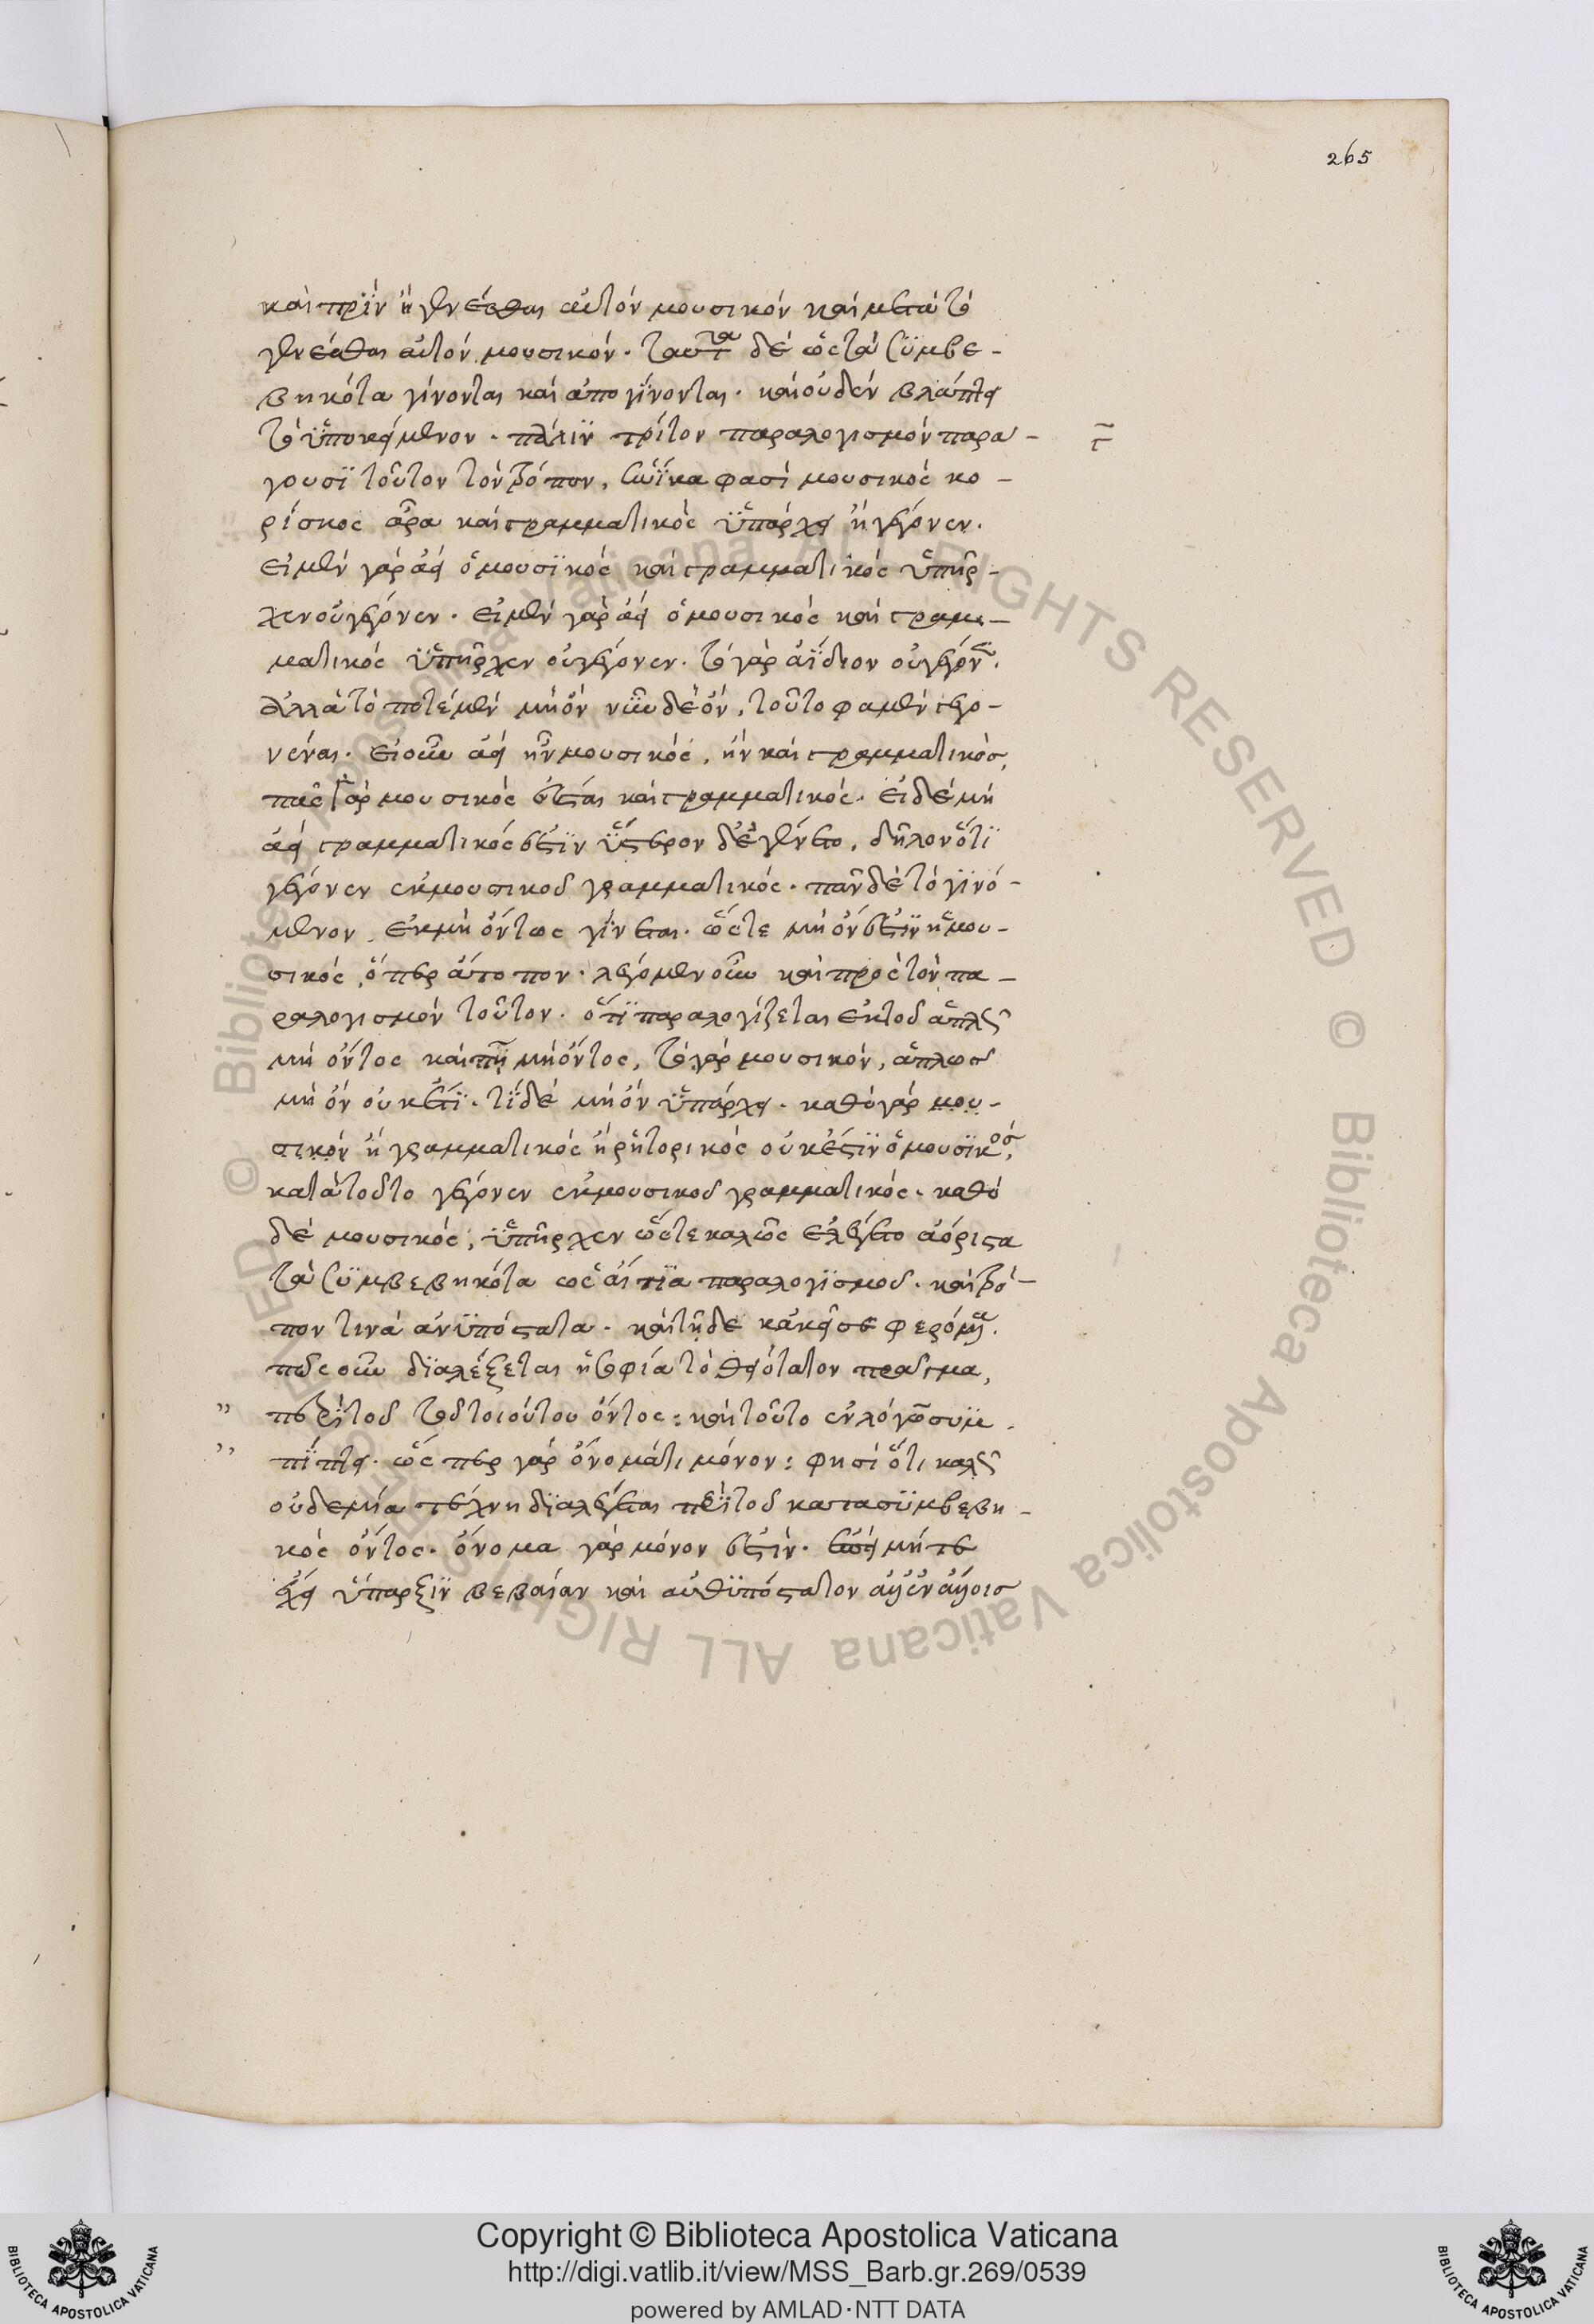 265
καὶ πρὶν ἢ γενέσθαι αὐτὸν μουσικὸν καὶ μετὰ τὸ
γενέσθαι αὐτὸν μουσικόν. ταῦτα δὲ ὡς τὰ συμβε-
βηκότα γίνονται καὶ ἀπογίνονται. καὶ οὐδὲν βλάπτει
τὸ ὑποκείμενον. πάλιν τρίτον παραλογισμὸν παρά-
γουσι τοῦτον τὸν τρόπον, φασὶ μουσικὸς κο-
ρίσκος ἆρα καὶ γραμματικὸς ὑπάρχει ἢ γέγονεν.
εἰ μὲν γὰρ ἀεὶ ὁ μουσικὸς καὶ γραμματικὸς ὑπῆρ-
χεν οὐ γέγονεν. εἰ μὲν γὰρ ἀεὶ ὁ μουσικὸς καὶ γραμ-
ματικὸς ὑπῆρχεν οὐ γέγονεν. τὸ γὰρ ἀΐδιον οὐ γέγονεν.
ἀλλὰ τὸ ποτὲ μὲν μὴ ὂν νῦν δὲ ὄν, τοῦτο φαμὲν γεγο-
νέναι. εἰ οὖν ἀεὶ ἦν μουσικός, ἦν καὶ γραμματικὸς,
πᾶς γὰρ μουσικὸς ἔσται καὶ γραμματικός. εἰ δὲ μὴ
ἀεὶ γραμματικός ἐστιν ὕστερον δὲ ἐγένετο, δῆλον ὅτι
γέγονεν ἐκ μουσικοῦ γραμματικός. πᾶν δὲ τὸ γινό-
μενον, ἐκ μὴ ὄντος γίνεται. ὥστε μὴ ὄν ἐστιν ἡ μου-
σικός, ὅπερ ἄτοπον. λέγομεν οὖν καὶ πρὸς τὸν πα-
ραλογισμὸν τοῦτον. ὅτι παραλογίζεται ἐκ τοῦ ἁπλῶς
μὴ ὄντος καὶ πῆ μὴ ὄντος, τὸ γὰρ μουσικόν, ἁπλῶς
μὴ ὂν οὐκ ἔστι. τὶ δὲ μὴ ὂν ὑπάρχει. καθὸ γὰρ μου-
σικὸν ἢ γραμματικὸς ἢ ῥητορικὸς οὐκ ἔστιν ὁ μουσικός,
κατὰ τοῦτο γέγονεν ἐκ μουσικοῦ γραμματικός. καθὸ
δὲ μουσικός, ὑπῆρχεν ὥστε καλῶς ἐλέγετο ἀόριστα
τὰ συμβεβηκότα ὡς αἴτια παραλογισμοῦ. καὶ τρό-
πον τινὰ ἀνυπόστατα. καὶ τῇδε κἀκεῖσε φερόμενα.
πῶς οὖν διαλέξεται ἡ σοφία τὸ θειότατον πρᾶγμα,
" περὶ τοῦ τοῦ τοιούτου ὄντος: καὶ τοῦτο εὐλόγως συμ-
" πίπτει. ὥσπερ γὰρ ὀνόματι μόνον: φησὶ ὅτι καλῶς
οὐδεμία τέχνη διαλέγεται περὶ τοῦ κατὰ συμβεβη-
κὸς ὄντος. ὄνομα γὰρ μόνον ἐστίν. ἐπεὶ μήτε
ἔχει ὕπαρξιν βεβαίαν καὶ αὐθυπόστατον ἀεὶ ἐν ἄλλοις
τ
Copyright © Biblioteca Apostolica Vaticana
http://digi.vatlib.it/view/MSS_Barb.gr.269/0539
powered by AMLAD·NTT DATA
BIBLIOTECA APOSTOLICA VATICANA
BIBLIOTECA APOSTOLICA VATICANA
© Biblioteca Apostolica Vaticana ALL RIGHTS RESERVED © Biblioteca Apostolica Vaticana ALL RIGHTS RESERVED